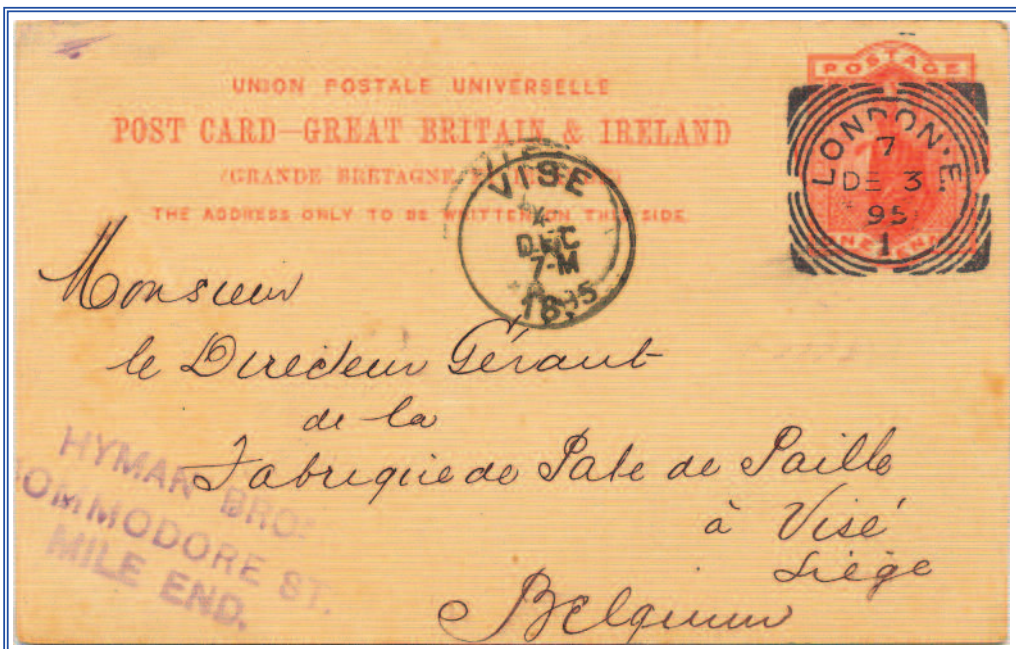 UNION POSTALE UNIVERSELLE
POST CARD—GREAT BRITAIN & IRELAND
(GRANDE BRETAGNE
THE ADDRESS ONLY TO BE WRITTEN ON THIS SIDE.
POSTAGE
LONDON·E
7
DE 3
95
1
VISE
4
DEC
7-M
1895
Monsieur
le Directeur Gérant
de la
Fabrique de Pate de Paille
à Visé
Liège
Belgium
HYMAN BROS
COMMODORE ST.
MILE END.